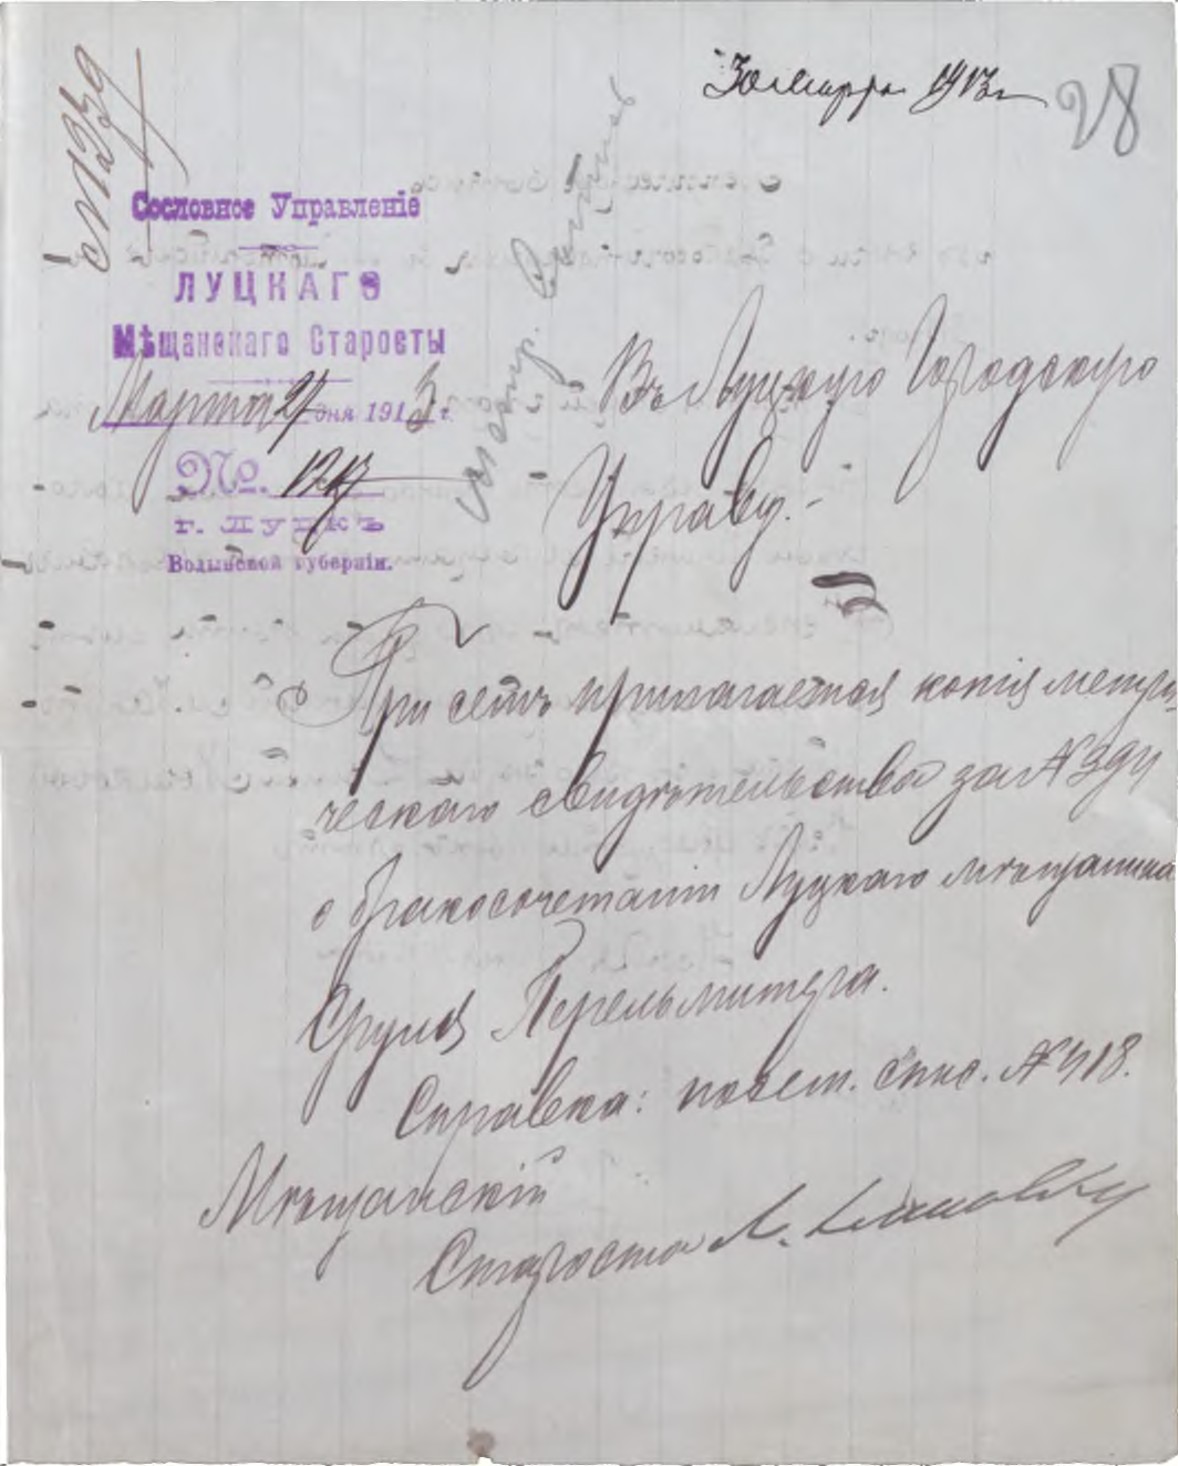 30 Марта 1913 г
28
№1239
Сословное Управленіе
ЛУЦКАГО
Мѣщанскаго Старосты
Марта 27 дня 1913 г.
№. 1217
г. Луцкъ
Волынской губерніи.
Въ Луцкую Городскую
Управу.-
При семъ прилагается копія метри-
ческаго свидѣтельства за №394
о бракосочетаніи Луцкаго мѣщанина
Сруля Перельмитера.
Справка: посем. спис. №418.
Мѣщанскій
Староста